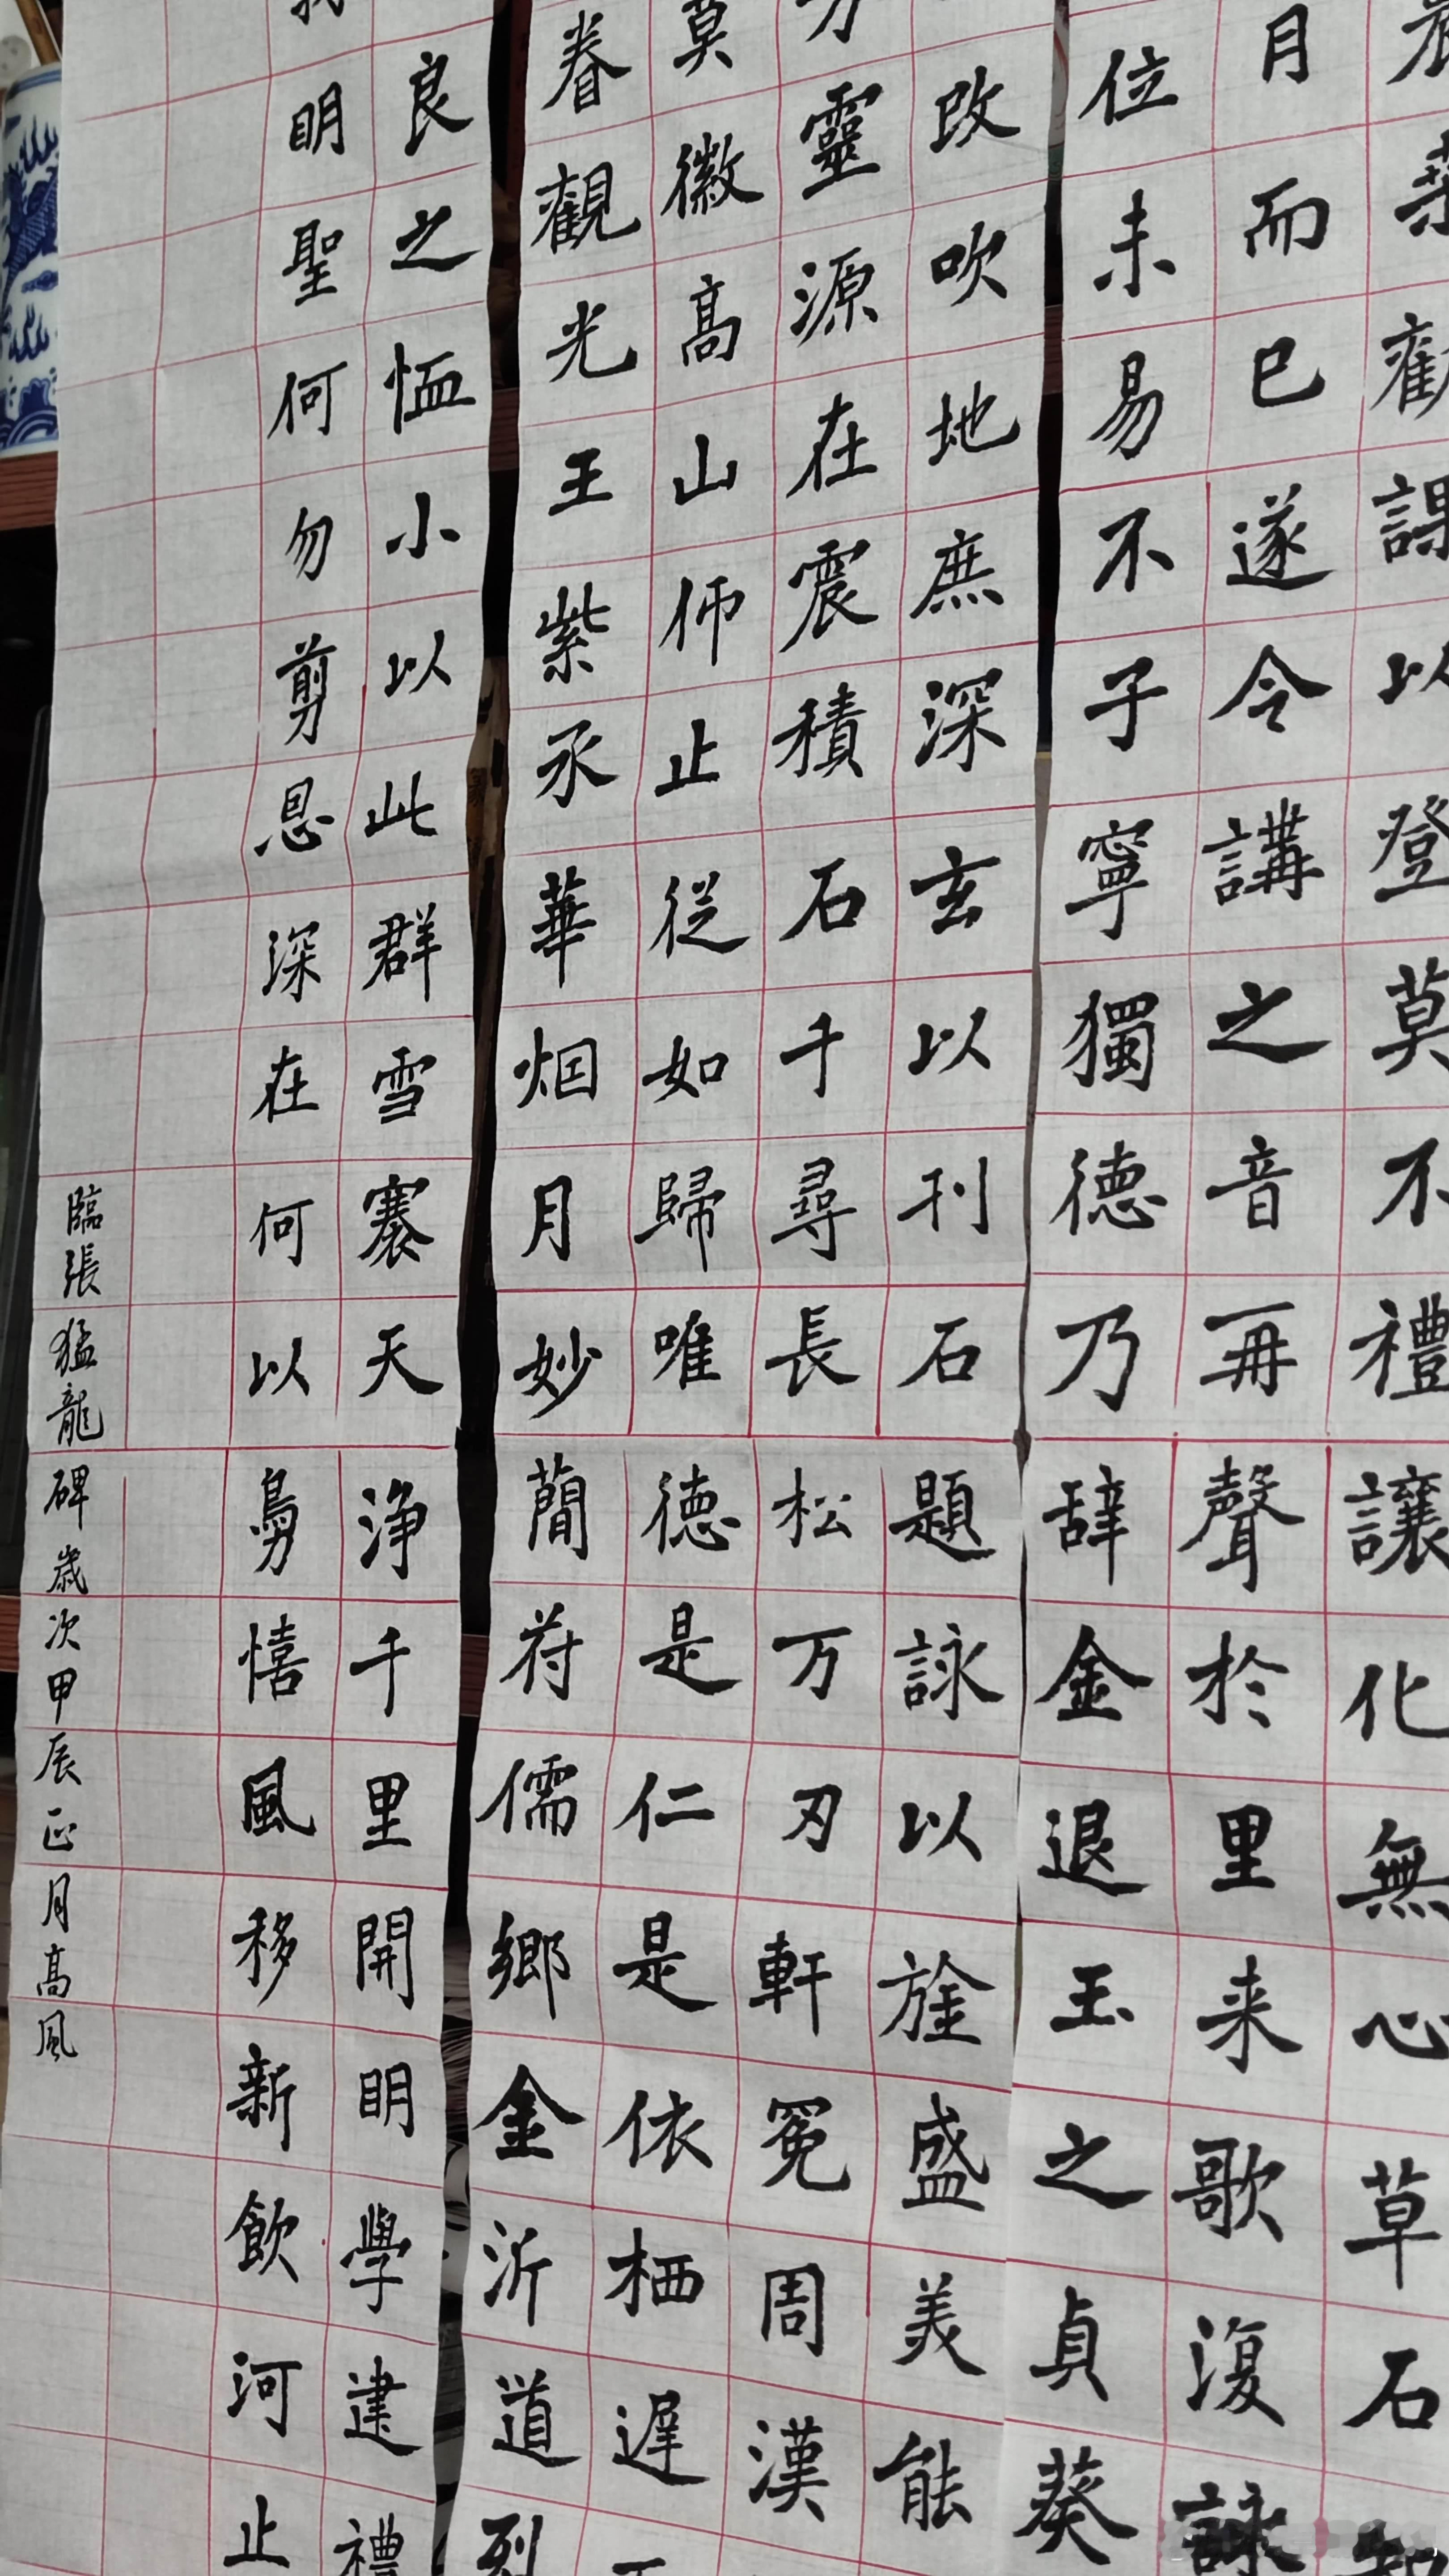 桑勸課以登莫不禮讓化無心草石
月而已遂令講之音再聲於里来歌復詠
位未易不子寧獨德乃辞金退玉之貞葵
改吹地庶深玄以刊石題詠以旌盛美能
方靈源在震積石千尋長松万刃軒冕周漢
莫徽高山仰止從如歸唯德是仁是依栖遲
眷觀光王紫承華烟月妙簡苻儒鄉金沂道列
良之恤小以此群雪褰天淨千里開明學建禮
明聖何勿剪恩深在何以勗憘風移新飲河止
臨張猛龍碑歲次甲辰正月高風